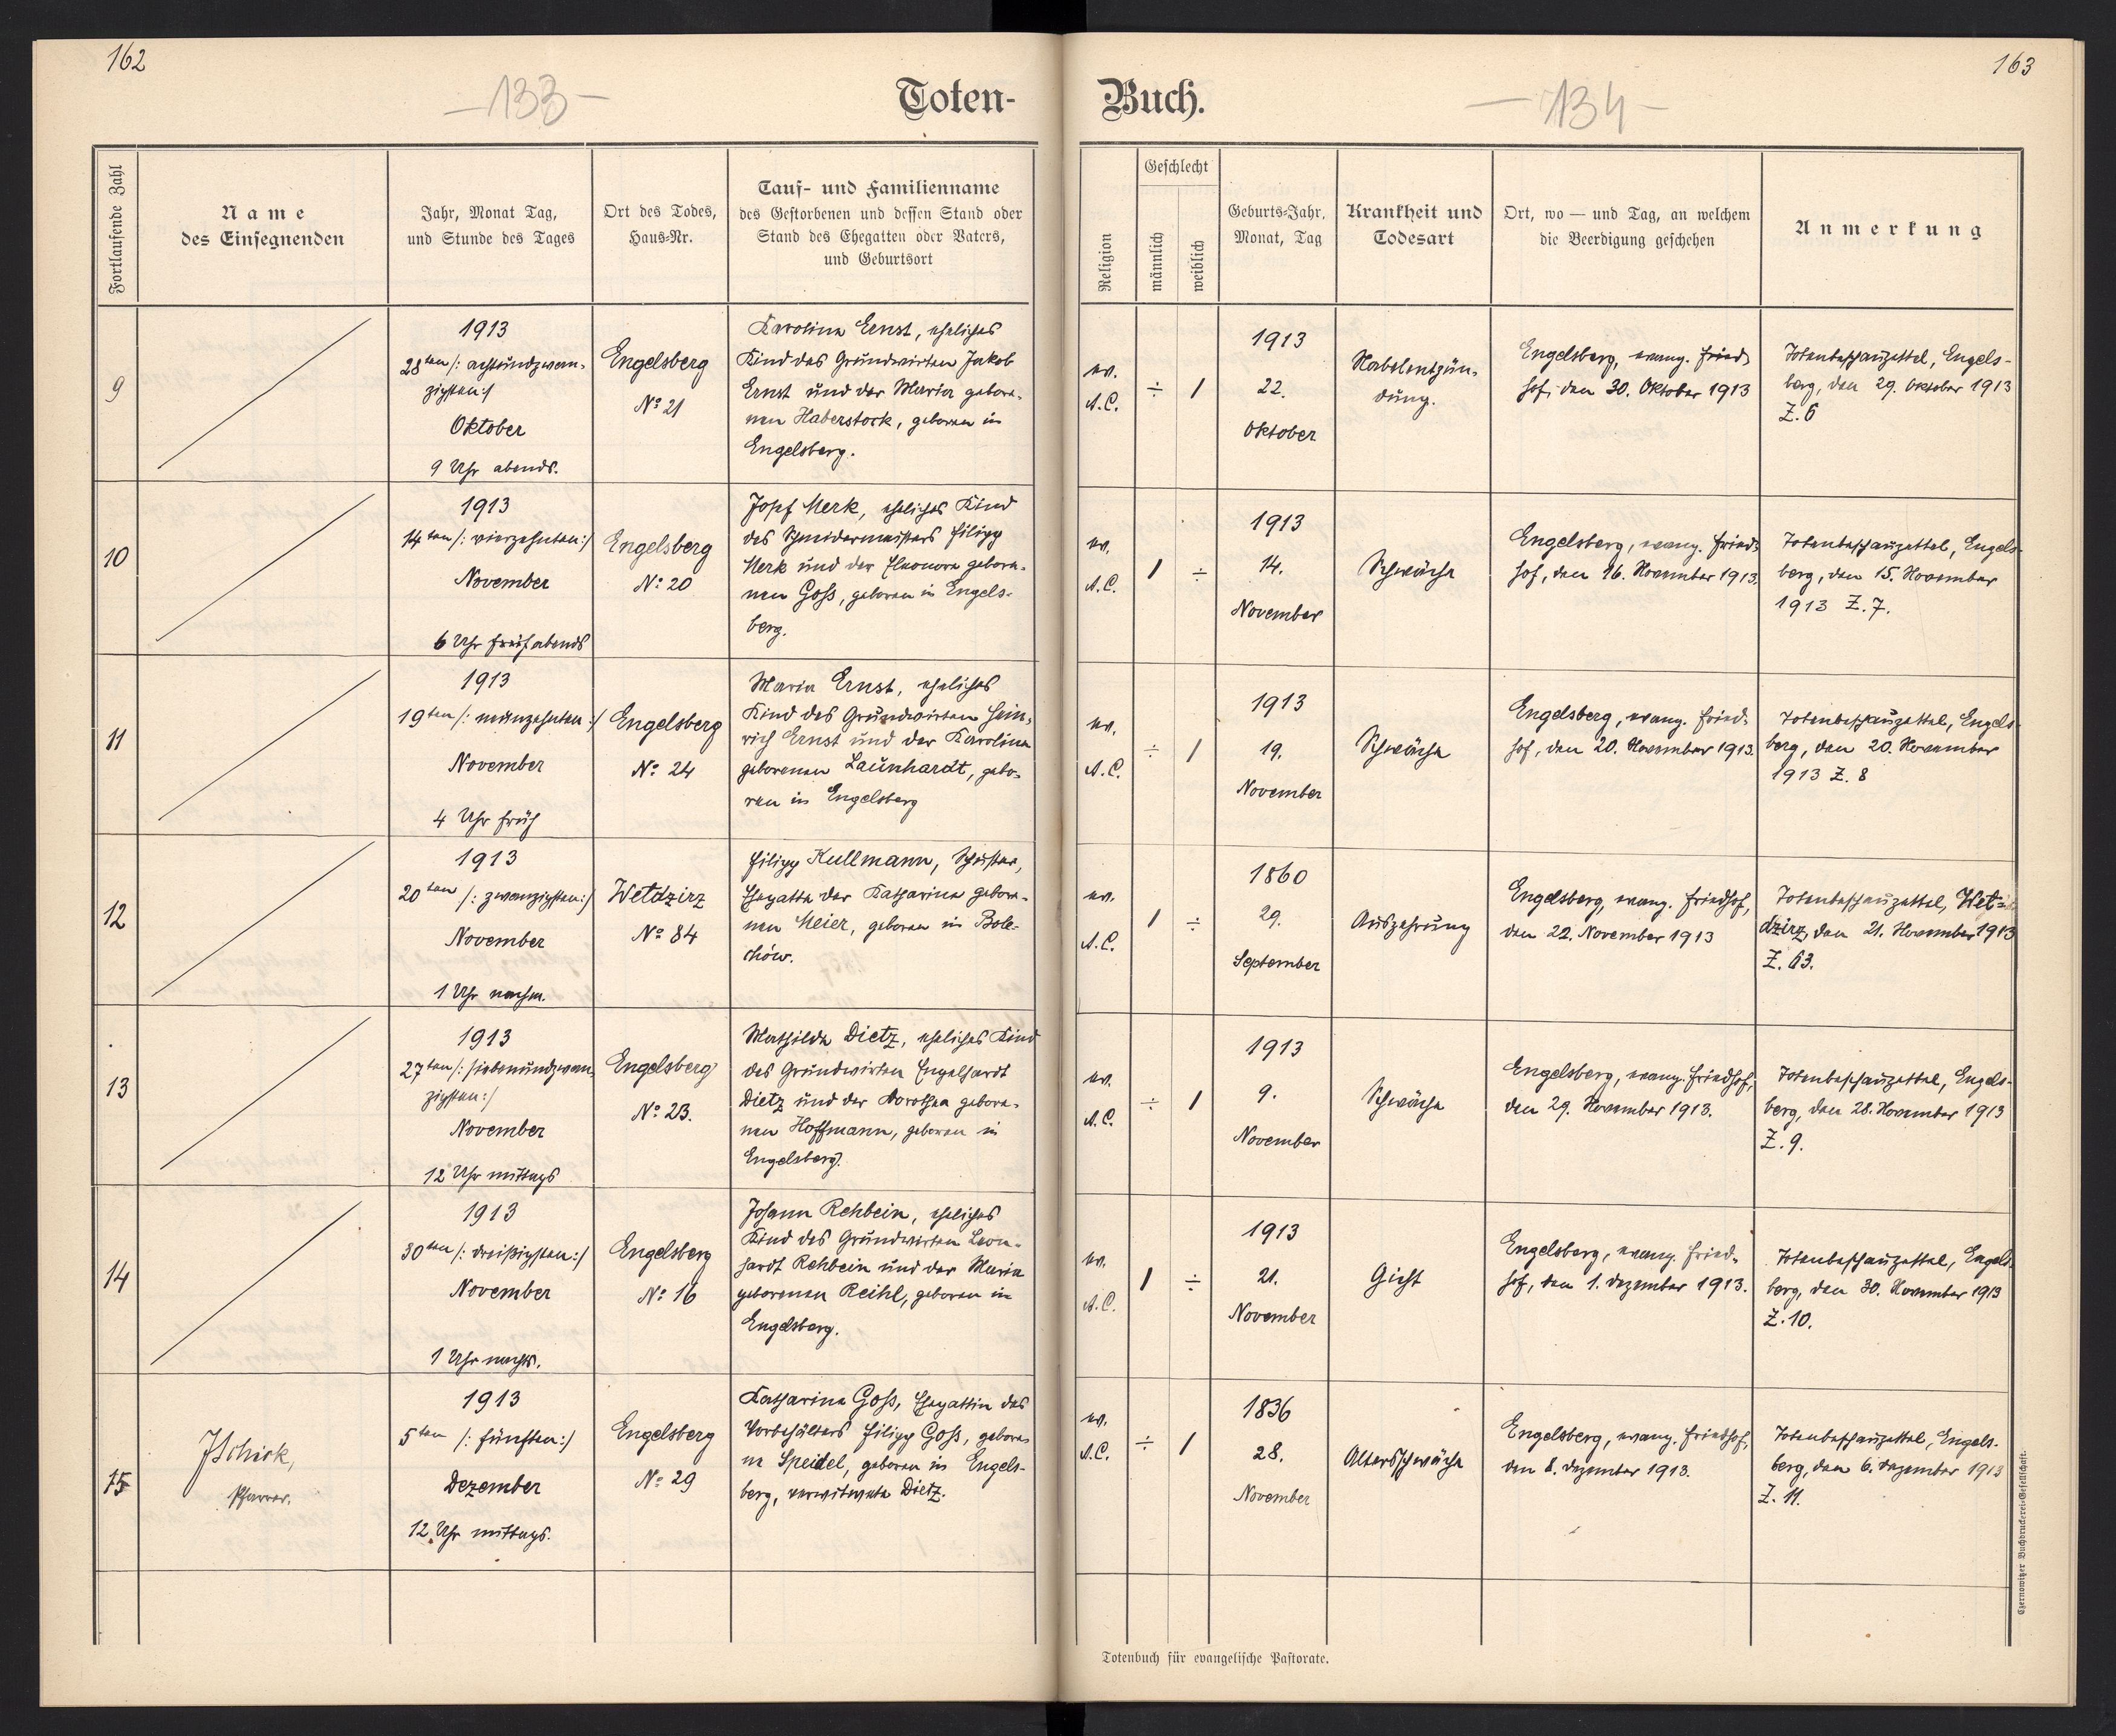 162
-133-
Toten-
Fortlaufende Zahl
Name
des Einsegnenden
Jahr, Monat Tag,
und Stunde des Tages
Ort des Todes,
Haus-Nr.
Tauf- und Familienname
des Gestorbenen und dessen Stand oder
Stand des Ehegatten oder Vaters,
und Geburtsort
9
1913
28ten /: achtundzwan-
zigsten :/
Oktober
9 Uhr abends.
Engelsberg
No 21
Karolina Ernst, eheliches
Kind des Grundwirten Jakob
Ernst und der Maria gebore-
nen Haberstock, geboren in
Engelsberg.
10
1913
14ten /: vierzehnten :/
November
6 Uhr früh abends
Engelsberg
No 20
Josef Merk, eheliches Kind
des Schneidermeisters Filipp
Merk und der Eleonora gebore-
nen Goß, geboren in Engels-
berg.
11
1913
19ten /: neunzehnten :/
November
4 Uhr früh
Engelsberg
No 24
Maria Ernst, eheliches
Kind des Grundwirten Hein-
rich Ernst und der Karolina
geborenen Launhardt, gebo-
ren in Engelsberg
12
1913
20ten /: zwanzigsten :/
November
1 Uhr nachm.
Wetdzirz
No 84
Filipp Kullmann, Schuster,
Ehegatte der Katharina gebore-
nen Meier, geboren in Bole-
chów.
13
1913
27ten /: siebenundzwan-
zigsten :/
November
12 Uhr mittags
Engelsberg
No 23.
Mathilde Dietz, eheliches Kind
des Grundwirten Engelhardt
Dietz und der Dorothea gebore-
nen Hoffmann, geboren in
Engelsberg.
14
1913
30ten /: dreißigsten :/
November
1 Uhr nachts.
Engelsberg
No 16
Johann Rehbein, eheliches
Kind des Grundwirten Leon-
hardt Rehbein und der Maria
geborenen Reihl, geboren in
Engelsberg.
15
JSchick,
Pfarrer.
1913
5ten /: fünften :/
Dezember
12 Uhr mittags.
Engelsberg
No 29
Katharina Goß, Ehegattin des
Vorbehälters Filipp Goß, gebore-
ne Speidel, geboren in Engels-
berg, verwitwete Dietz.
163
-134-
Buch.
Religion
Geschlecht
männlich
weiblich
Geburts-Jahr,
Monat, Tag
Krankheit und
Todesart
Ort, wo — und Tag, an welchem
die Beerdigung geschehen
Anmerkung
ev.
A.C.
÷
1
1913
22.
Oktober
Nabelentzün-
dung.
Engelsberg, evang. Fried-
hof, den 30. Oktober 1913
Totenbeschauzettel, Engels-
berg, den 29. Oktober 1913
Z. 6
ev.
A.C.
1
÷
1913
14.
November
Schwäche
Engelsberg, evang. Fried-
hof, den 16. November 1913.
Totenbeschauzettel, Engels-
berg, den 15. November
1913 Z. 7.
ev.
A.C.
÷
1
1913
19.
November
Schwäche
Engelsberg, evang. Fried-
hof, den 20. November 1913.
Totenbeschauzettel, Engels-
berg, den 20. November
1913 Z. 8
ev.
A.C.
1
÷
1860
29.
September
Auszehrung
Engelsberg, evang. Friedhof,
den 22. November 1913
Totenbeschauzettel, Wet-
dzirz, den 21. November 1913
Z. 63.
ev.
A.C.
÷
1
1913
9.
November
Schwäche
Engelsberg, evang. Friedhof,
den 29. November 1913.
Totenbeschauzettel, Engels-
berg, den 28. November 1913
Z. 9.
ev.
A.C.
1
÷
1913
21.
November
Gicht
Engelsberg, evang. Fried-
hof, den 1. Dezember 1913.
Totenbeschauzettel, Engels-
berg, den 30. November 1913
Z. 10.
ev.
A.C.
÷
1
1836
28.
November
Altersschwäche
Engelsberg, evang. Friedhof,
den 8. Dezember 1913.
Totenbeschauzettel, Engels-
berg, den 6. Dezember 1913
Z. 11.
Totenbuch für evangelische Pastorate.
Czernowitzer Buchdruckerei-Gesellschaft.